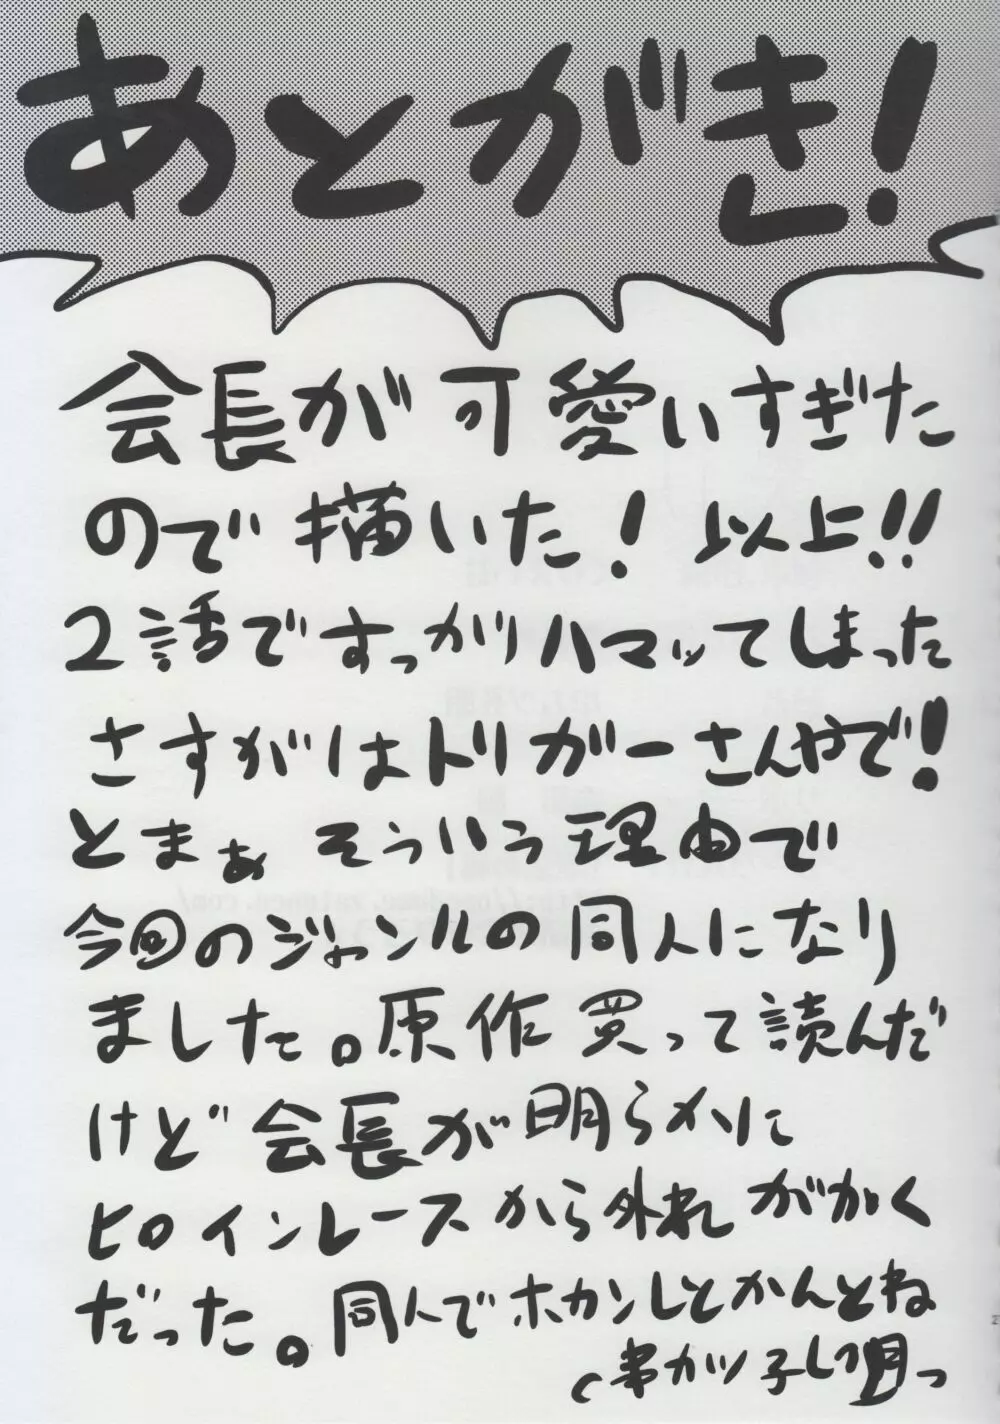 あとがき！
会長が可愛いすぎた
ので描いた！以上!!
2話ですっかりハマッてしまった
さすがはトリガーさんやで！
とまぁ そういう理由で
今回のジャンルの同人になり
ました。原作買って読んだ
けど会長が明らかに
ヒロインレースから外れがかく
だった。同人でホカンしとかんとね
串カツ子